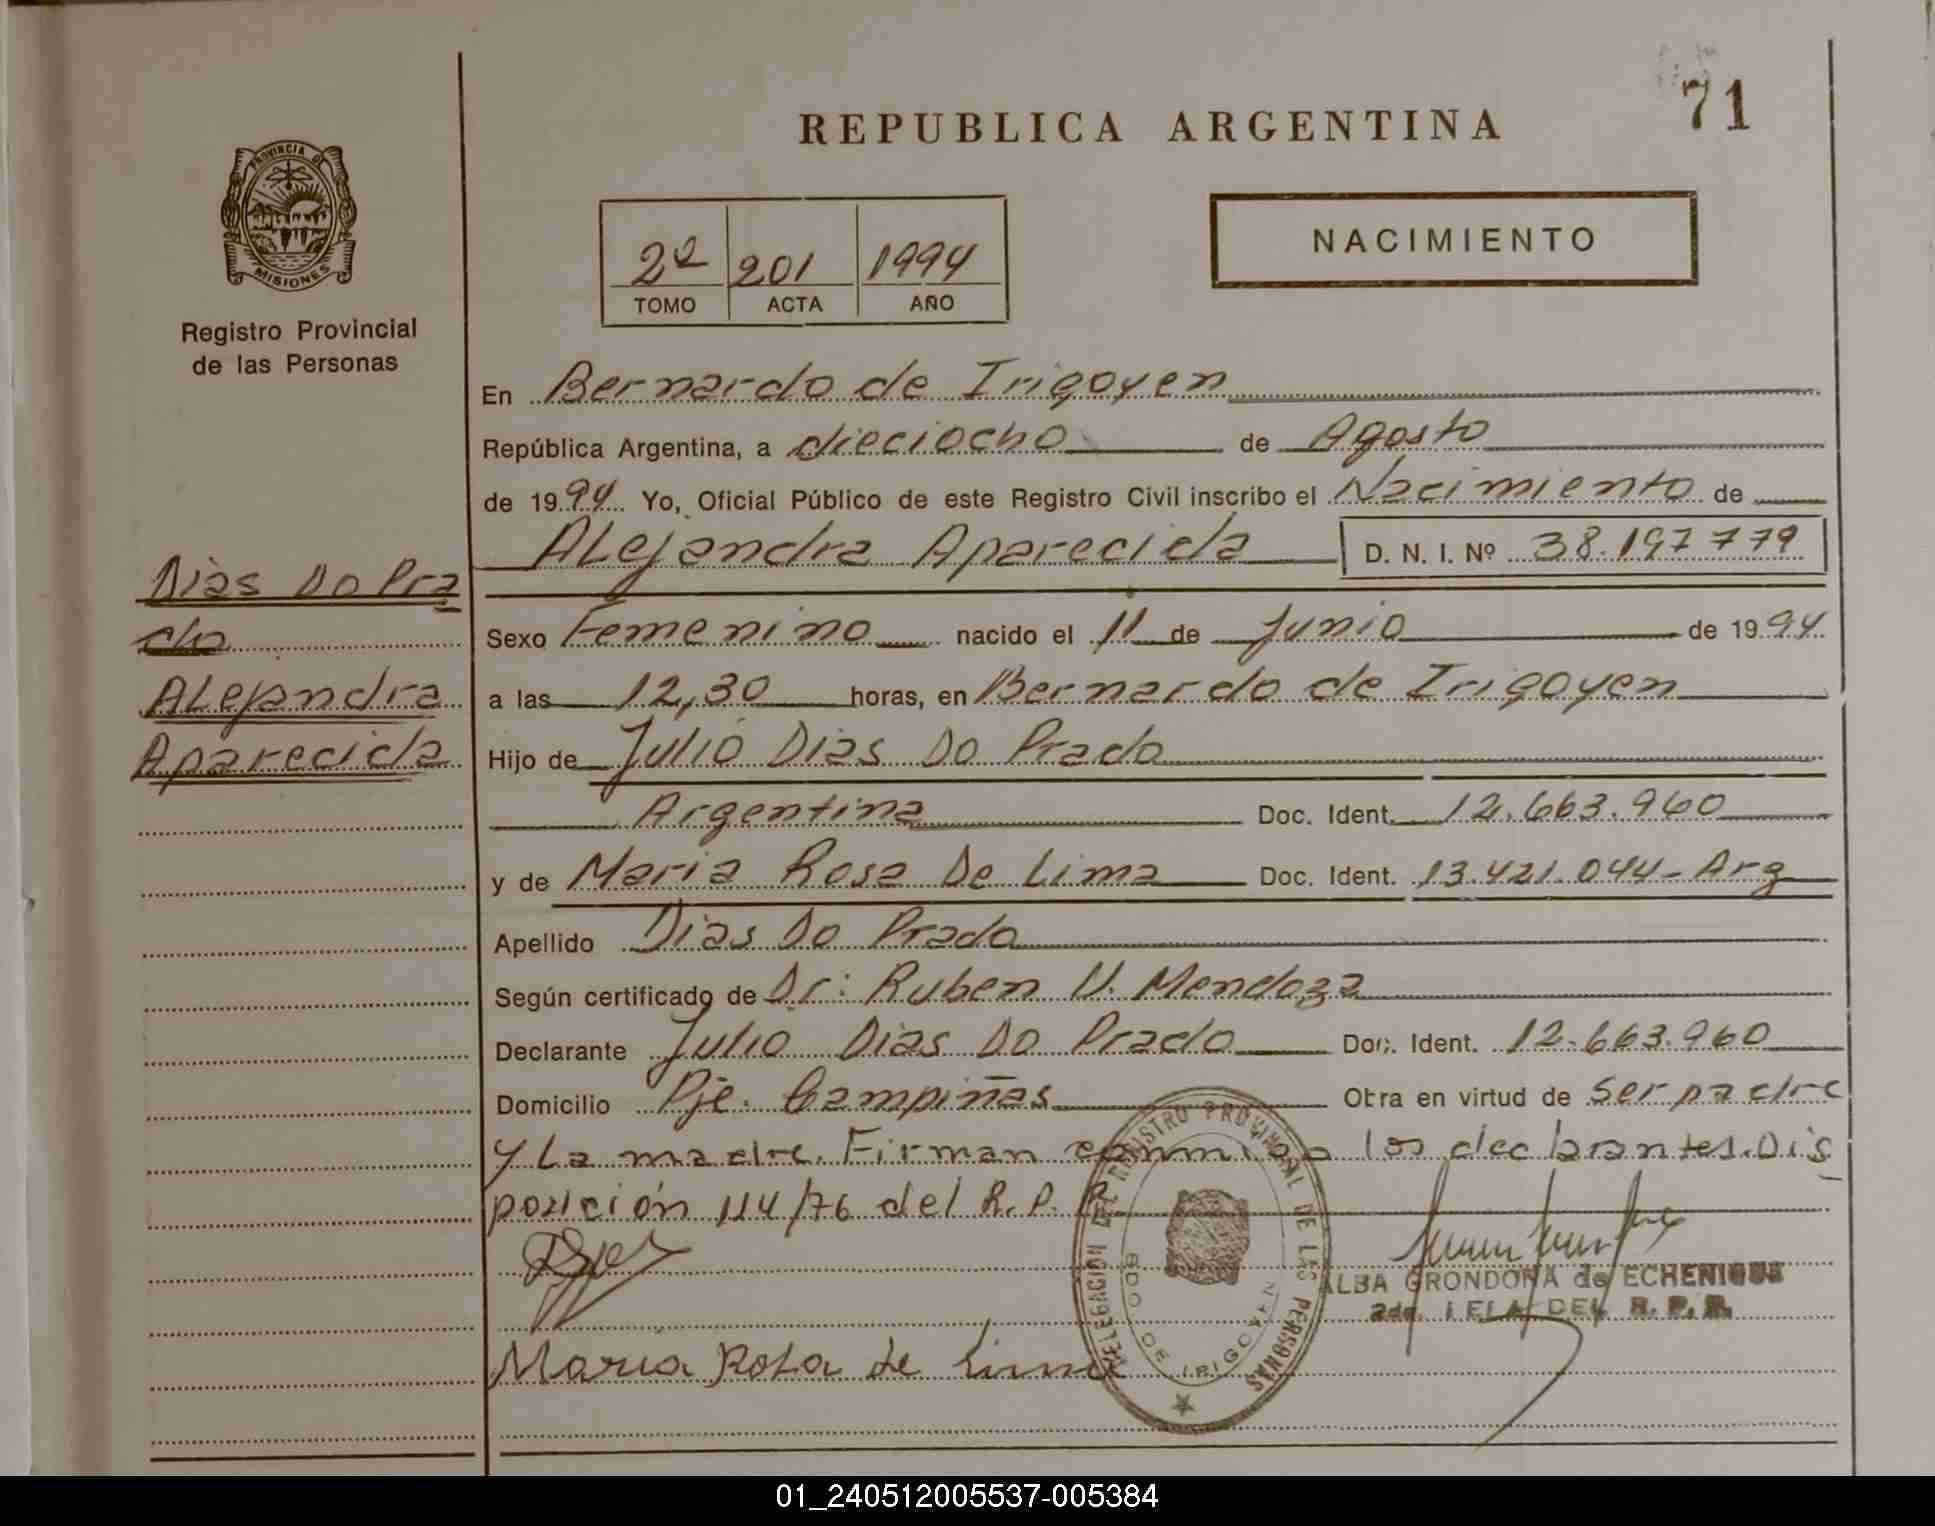 REPUBLICA ARGENTINA
71
PROVINCIA DE
MISIONES
Registro Provincial
de las Personas
2º 201 1994
TOMO ACTA AÑO
NACIMIENTO
En Bernardo de Irigoyen
República Argentina, a dieciocho de Agosto
de 1994 Yo, Oficial Público de este Registro Civil inscribo el Nacimiento de
Alejandra Aparecida D. N. I. Nº 38.197779
Dias Do Pra
do
Alejandra
Aparecida
Sexo Femenino nacido el 11 de Junio de 1994
a las 12,30 horas, en Bernardo de Irigoyen
Hijo de Julio Dias Do Prado
Argentina Doc. Ident. 12.663.960
y de Maria Rosa De Lima Doc. Ident. 13.421.044- Arg
Apellido Dias Do Prado
Según certificado de Dr: Ruben V. Mendoza
Declarante Julio Dias Do Prado Doc. Ident. 12.663.960
Domicilio Pje. Campiñas Obra en virtud de Ser padre
y La madre. Firman conmigo los declarantes. Dis
posición 114/76 del R. P. P.
Maria Rosa de Lima
DELEGACION DEL REGISTRO PROVINCIAL DE LAS PERSONAS
BDO. DE IRIGOYEN
ALBA GRONDONA de ECHENIQUE
DEL R. P. P.
01_240512005537-005384